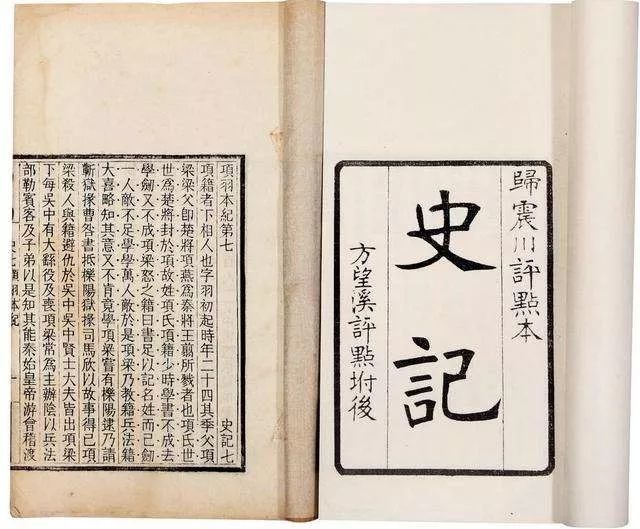 歸震川評點本
史記
方望溪評點坿後
項羽本紀第七 史記七
項籍者下相人也字羽初起時年二十四其季父項
梁梁父卽楚將項燕爲秦將王翦所戮者也項氏世
世爲楚將封於項故姓項氏項籍少時學書不成去
學劒又不成項梁怒之籍曰書足以記名姓而已劒
一人敵不足學學萬人敵於是項梁乃敎籍兵法籍
大喜略知其意又不肯竟學項梁嘗有櫟陽逮乃請
蘄獄掾曹咎書抵櫟陽獄掾司馬欣以故事得已項
梁殺人與籍避仇於吳中吳中賢士大夫皆出項梁
下每吳中有大繇役及喪項梁常爲主辦陰以兵法
部勒賓客及子弟以是知其能秦始皇帝游會稽渡